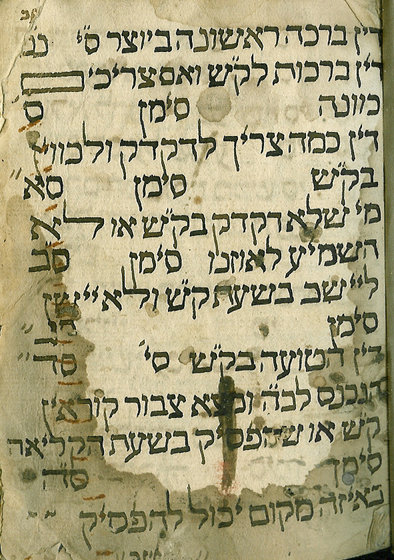 דין ברכה ראשונה ביוצר ס׳ נט
דין ברכות לק״ש ואם צריכי׳
כוונה סימן ס׳
דין כמה צריך לדקדק ולכווין
בק״ש סימן סא
מי שלא דקדק בק״ש או לא
השמיע לאוזנו סימן סב
ליישב בשעת ק״ש ולא יישן
סימן סג
דין הטועה בק״ש ס׳ סד
הנכנס לב״ה ומצא צבור קוראין
ק״ש או שהפסיק בשעת הקריאה
סימן סה
באיזה מקום יכול להפסיק